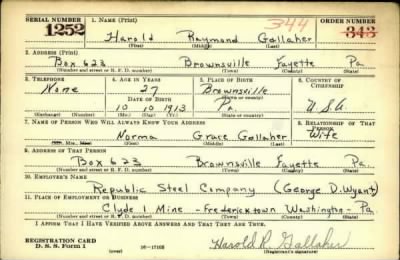 SERIAL NUMBER 1. NAME (Print) 344 ORDER NUMBER
1252 Harold Raymond Gallaher 343
(First) (Middle) (Last)
2. ADDRESS (Print)
Box 623 Brownsville Fayette Pa.
(Number and street or R. F. D. number) (Town) (County) (State)
3. TELEPHONE 4. AGE IN YEARS 5. PLACE OF BIRTH 6. COUNTRY OF CITIZENSHIP
None 27 Brownsville
DATE OF BIRTH (Town or county)
10 10 1913 Pa. U.S.A
(Exchange) (Number) (Mo.) (Day) (Yr.) (State or country)
7. NAME OF PERSON WHO WILL ALWAYS KNOW YOUR ADDRESS 8. RELATIONSHIP OF THAT PERSON
Norma Grace Gallaher Wife
(Mr., Mrs., Miss) (First) (Middle) (Last)
9. ADDRESS OF THAT PERSON
Box 623 Brownsville Fayette Pa.
(Number and street or R. F. D. number) (Town) (County) (State)
10. EMPLOYER'S NAME
Republic Steel Company (George D. Wyant)
11. PLACE OF EMPLOYMENT OR BUSINESS
Clyde 1 Mine - Fredericktown Washington - Pa
(Number and street or R. F. D. number) (Town) (County) (State)
I AFFIRM THAT I HAVE VERIFIED ABOVE ANSWERS AND THAT THEY ARE TRUE.
REGISTRATION CARD
D. S. S. Form 1 (over) 16-17105 Harold R. Gallaher
(Registrant's signature)